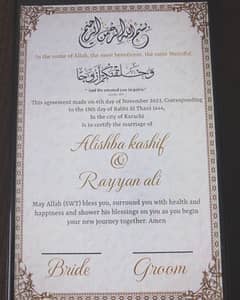 بسم الله الرحمن الرحيم
In the name of Allah, the most beneficent, the most Merciful.
وخلقنكم ازوجا
"And We created you in pairs."
This agreement made on 4th day of November 2023, Corresponding
to the 19th day of Rabi Al Thani 1444,
In the city of Karachi
is to certify the marriage of
Alishba kashif
&
Rayyan ali
May Allah (SWT) bless you, surround you with health and
happiness and shower his blessings on you as you begin
your new journey together. Amen
Bride Groom